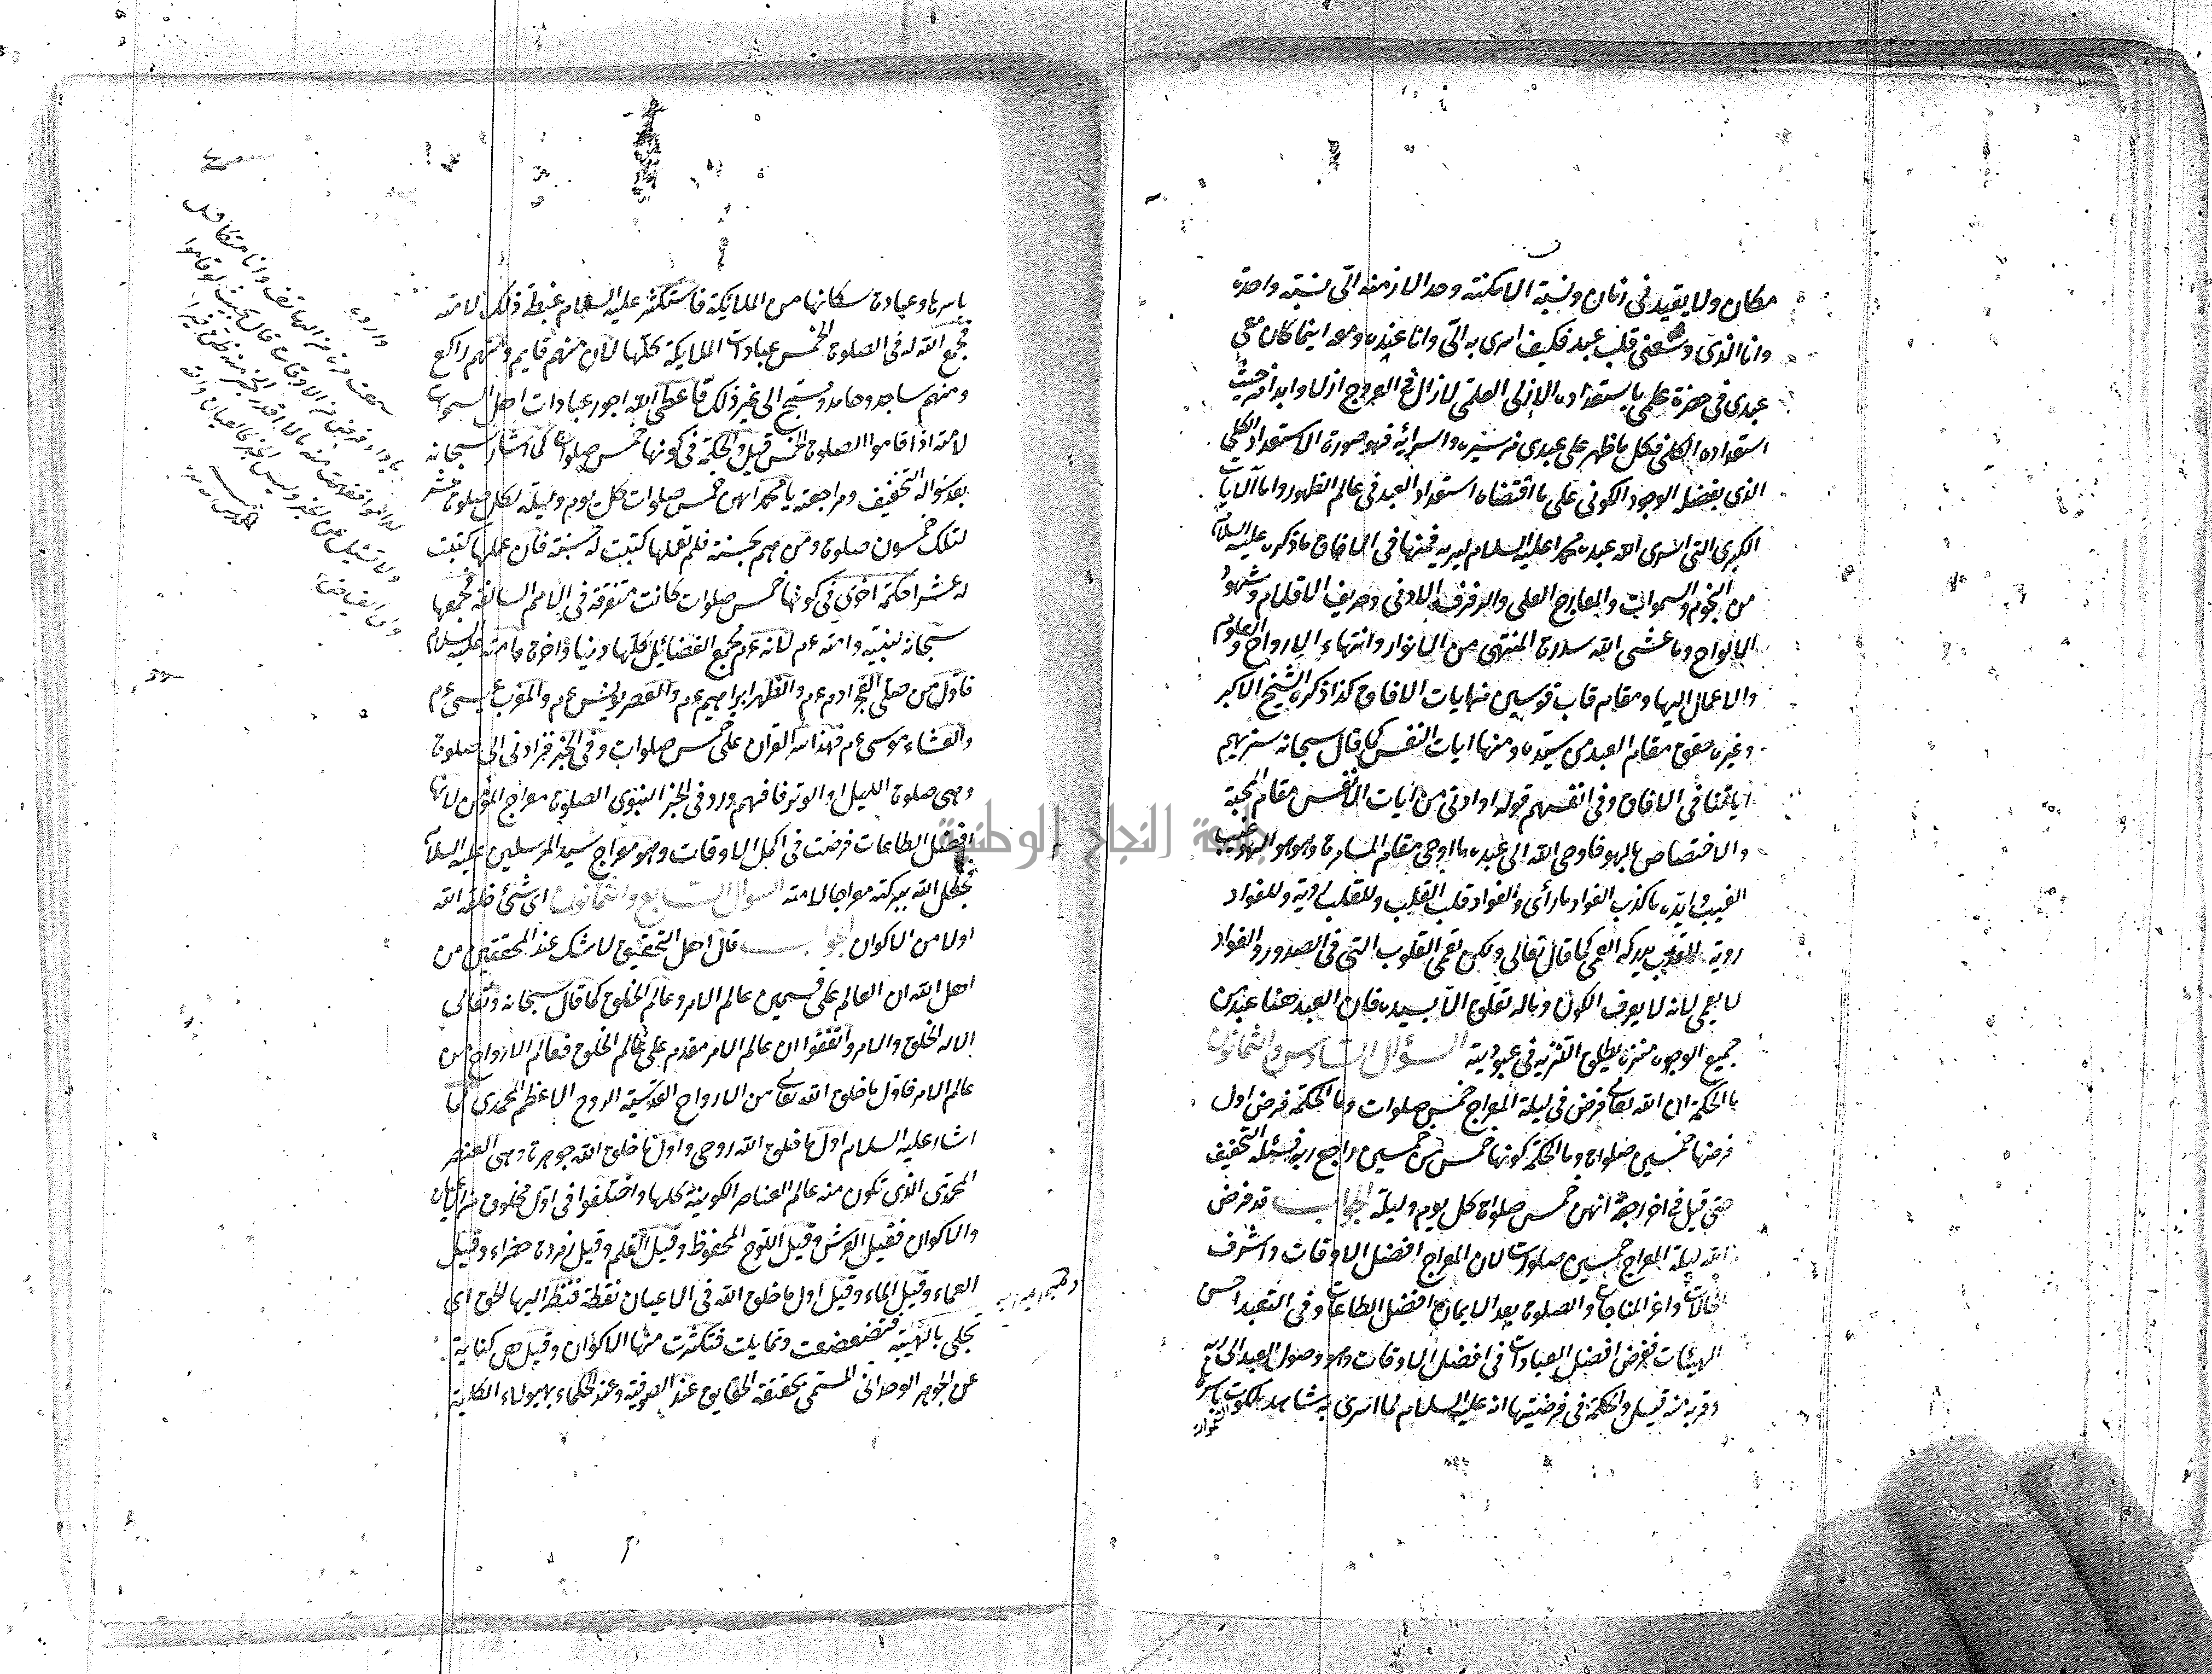 مكان ولا يقيد فى زمان ونسبة الامكنة وحد الازمنة الىّ نسبة واحدة
وانا الذى وسعنى قلب عبد فكيف اسرى به الىّ وانا عنده ومعه اينما كان مع
عبدى فى حضرة علمى باستعداده الازلى العلمى لازال فى العروج ازلا وابدا
استعداده الكلى فكل ما ظهر على عبدى من سيره واسرائه فهو صورة الاستعداد الكلى
الذى يفضله الوجود الكونى على ما اقتضاه استعداد العبد فى عالم الظهور واما الآيات
الكبرى التى اسرى الله عبده محمدا عليه السلام ليريه فمنها فى الافاق ما ذكره عليه السلام
من النجوم والسموات والمعارج العلى والرفرف الادنى وصريف الاقلام وشهود
الالواح وما غشى الله سدرة المنتهى من الانوار وانتهاء الارواح والعلوم
والاعمال اليها ومقام قاب قوسين من ايات الافاق كذا ذكره الشيخ الاكبر
وغيره مقام العبد من سيده ومنها ايات النفس كما قال سبحانه سنريهم
اياتنا فى الافاق وفى انفسهم قوله او ادنى من ايات الانفس مقام المحبة
والاختصاص بالهو فاوحى الله الى عبده ما اوحى مقام المسامرة وهو هو الهو غيب
الغيب ايده ما كذب الفؤاد ما رأى والفواد قلب القلب وللقلب رؤية وللفواد
روية للقلب يدركه العمى كما قال تعالى ولكن تعمى القلوب التى فى الصدور والفواد
لا يعمى لانه لا يعرف الكون وماله تعلق الا بسيده فان العبد هنا عبد من
جميع الوجوه منزه مطلق التنزيه فى عبوديته السؤال السادس والثمانون
ما الحكمة ان الله تعالى فرض فى ليلة المعراج خمس صلوات وما الحكمة فرض اول
فرضها خمسين صلوات وما الحكمة كونها خمس من خمسين راجع ربه فسئله التخفيف
حتى قيل فى اخر رجعة انهن خمس صلواة كل يوم وليلة الجواب قد فرض
الله ليلة المعراج خمسين صلوات لان المعراج افضل الاوقات واشرف
الحالات واعز المناجات والصلوة بعد الايمان افضل الطاعات وفى التعبد احسن
الهيئات ففرض افضل العبادات فى افضل الاوقات وهو وصول العبد الى ربه
وقربه منه قيل والحكمة فى فرضيتها انه عليه السلام لما اسرى به شاهد ملكوت
باسرها وعبادة سكانها من الملايكة فاستكثر عليه السلام غبطة ذلك لامته
فجمع الله له فى الصلوة الخمس عبادات الملايكة كلها لان منهم قايم ومنهم راكع
ومنهم ساجد وحامد ومسبح الى غير ذلك فاعطى الله اجور عبادات اهل السموات
لامته اذا قاموا الصلوة الخمس قيل والحكمة فى كونها خمس صلوات كما اشار سبحانه
بعد سؤاله التخفيف ومراجعة يا محمد انهن خمس صلوات كل يوم وليلة لكل صلوة عشر
لتلك خمسون صلوة ومن هم بحسنة فلم يعملها كتبت له حسنة فان عملها كتبت
له عشرا حكمة اخرى فى كونها خمس صلوات كانت متفرقة فى الامم السالفة فجمعها
سبحانه لنبيه وامته عم لانه عم مجمع الفضائل كلها دنيا واخرة وامته عليه السلام
فاول من صلى الفجر ادم عم والظهر ابراهيم عم والعصر يونس عم والمغرب عيسى عم
والعشاء موسى عم فهذا سر القران على خمس صلوات وفى الخبر فزادنى الى صلوة
وهى صلوة الليل او الوتر فافهم ورد فى الخبر النبوى الصلوة معراج المؤمن لانها
افضل الطاعات فرضت فى اكمل الاوقات وهو معراج سيد المرسلين عليه السلام
فجعل الله ببركته معراجا لامته السؤال السابع والثمانون اى شئ خلقه الله
اولا من الاكوان الجواب قال اهل التحقيق لا شك عند المحققين من
اهل الله ان العالم على قسمين عالم الامر وعالم الخلق كما قال سبحانه وتعالى
الا له الخلق والامر واتفقوا ان عالم الامر مقدم على عالم الخلق فعالم الارواح من
عالم الامر فاول ما خلق الله تعالى من الارواح القدسية الروح الاعظم المحمدى كما
اشار عليه السلام اول ما خلق الله روحى واول ما خلق الله جوهرة وهى العنصر
المحمدى الذى تكون منه عالم العناصر الكونية كلها واختلفوا فى اول مخلوق من اعيان
والاكوان فقيل العرش وقيل اللوح المحفوظ وقيل القلم وقيل زمردة خضراء وقيل
العماء وقيل الماء وقيل اول ما خلق الله فى الاعيان نقطة فنظر اليها الحق اى
تجلى بالهيبة فتضعضعت وتمايلت فتكثرت منها الاكوان وقيل هى كناية
عن الجوهر الوحدانى المسمى بحقيقة الحقايق عند الصوفية وعند الحكماء بهيولاء الكلية
جامعة النجاح الوطنية